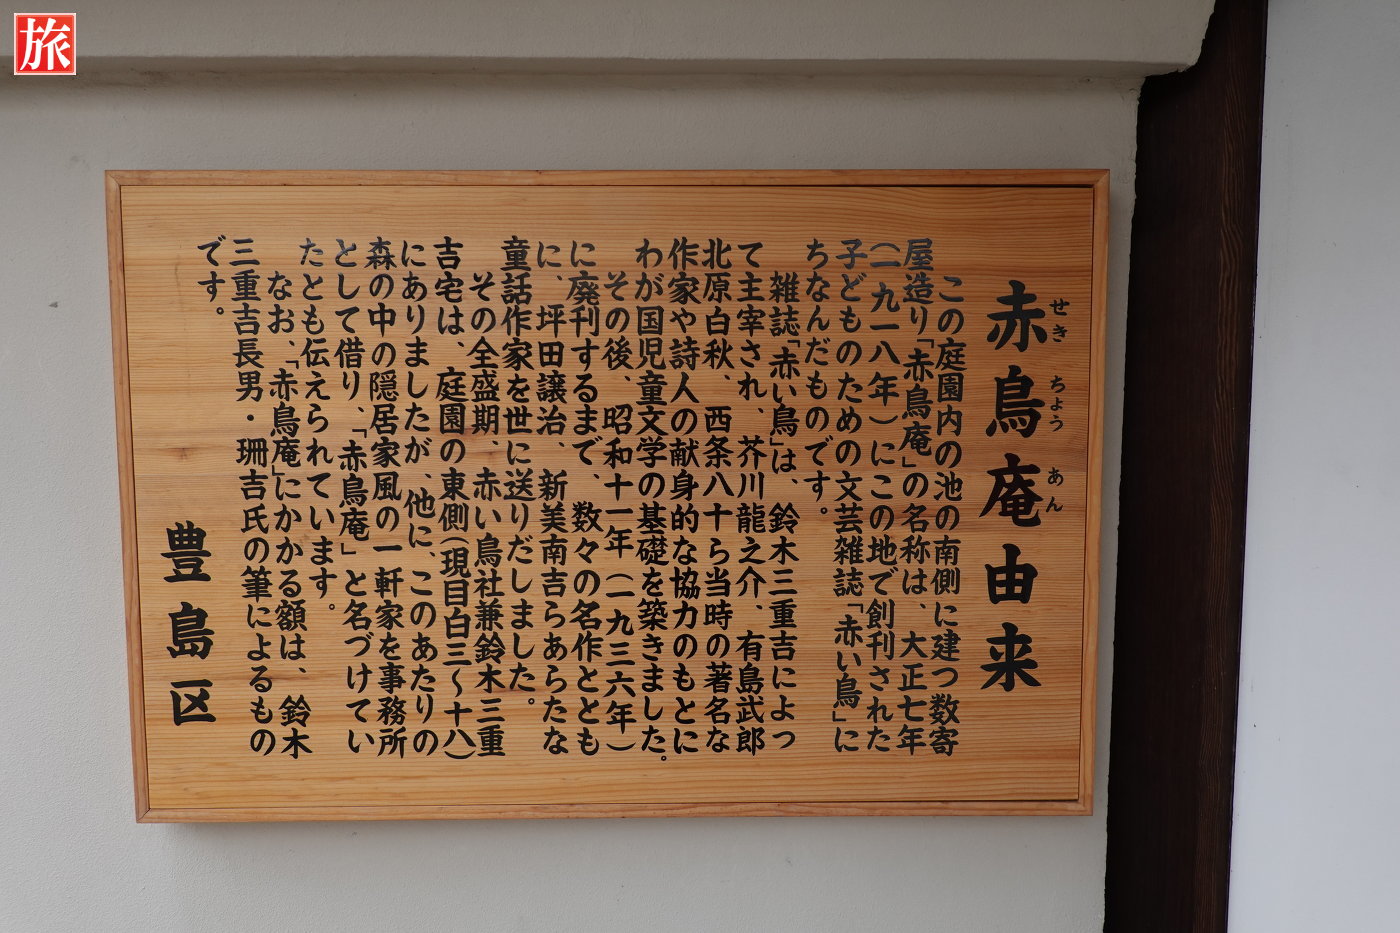 旅
赤鳥庵由来
せき ちょう あん
この庭園内の池の南側に建つ数寄
屋造り「赤鳥庵」の名称は、大正七年
(一九一八年)にこの地で創刊された
子どものための文芸雑誌「赤い鳥」に
ちなんだものです。
雑誌「赤い鳥」は、鈴木三重吉によっ
て主宰され、芥川龍之介、有島武郎
北原白秋、西条八十ら当時の著名な
作家や詩人の献身的な協力のもとに
わが国児童文学の基礎を築きました。
その後、昭和十一年(一九三六年)
に廃刊するまで、数々の名作ととも
に、坪田譲治、新美南吉らあらたな
童話作家を世に送りだしました。
その全盛期、赤い鳥社兼鈴木三重
吉宅は、庭園の東側(現目白三〜十八)
にありましたが、他に、このあたりの
森の中の隠居家風の一軒家を事務所
として借り、「赤鳥庵」と名づけてい
たとも伝えられています。
なお、「赤鳥庵」にかかる額は、鈴木
三重吉長男・珊吉氏の筆によるもの
です。
豊島区